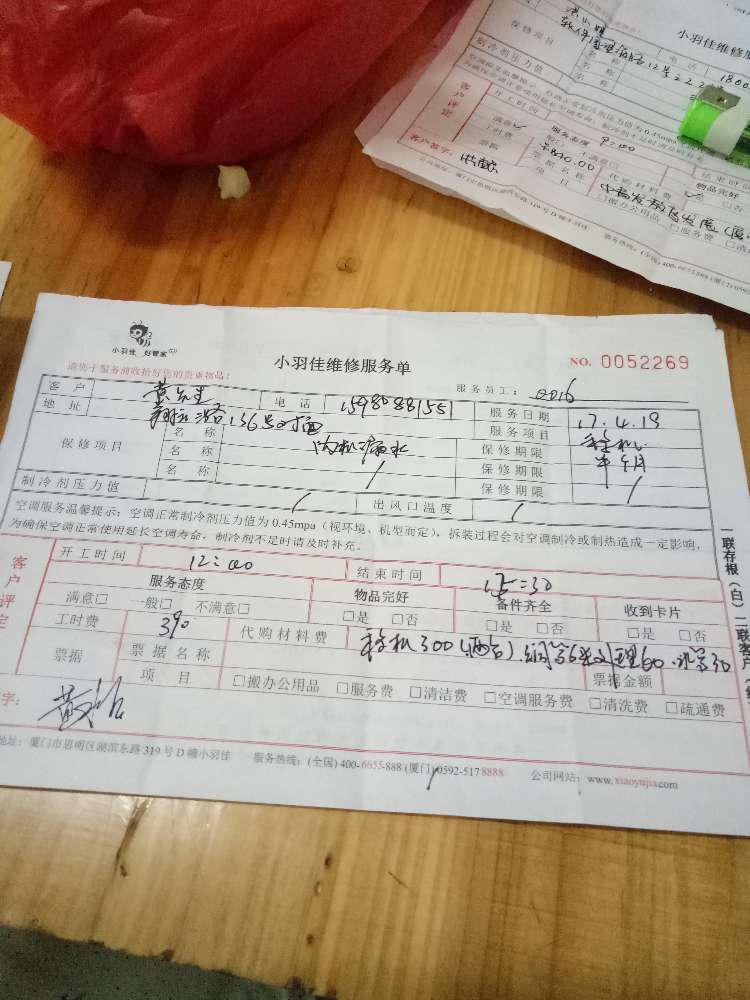 小羽佳维修服
保修项目
名称
电话
1800
名称
名称
制冷剂压力值
开工时间
服务态度
结束时
满意
一般
不满意□
工时费
代购材料费
物品完好
是 □否
票据
票据名称
项目
□搬办公用品 □服务费 □清
客户评定
客户签字:
小羽佳 好管家
小羽佳维修服务单
NO. 0052269
请您于服务前收拾好您的贵重物品:
服务员工: 0016
客户 黄先生 电话 15980881551 服务日期 17.4.19
地址 翔云路136号对面 服务项目 移机
保修项目 名称 内机漏水 保修期限 半个月
名称 / 保修期限
名称 保修期限 /
制冷剂压力值 / 出风口温度 /
空调服务温馨提示:空调正常制冷剂压力值为0.45mpa(视环境、机型而定),拆装过程会对空调制冷或制热造成一定影响,
为确保空调正常使用延长空调寿命,制冷剂不足时请及时补充。
客户评定
开工时间 12:00 结束时间 15:30
服务态度 物品完好 备件齐全 收到卡片
满意□ 一般□ 不满意□ □是 □否 □是 □否 □是 □否
工时费 390 代购材料费 移机300(两台).铜管
理60
30
票据 票据名称 票据金额
项目 □搬办公用品 □服务费 □清洁费 □空调服务费 □清洗费 □疏通费
字:
地址:厦门市思明区湖滨东路319号D幢小羽佳 服务热线:(全国)400-6655-888 (厦门)0592-5178888 公司网站:www.xiaoyujia.com
一联存根(白)二联客户